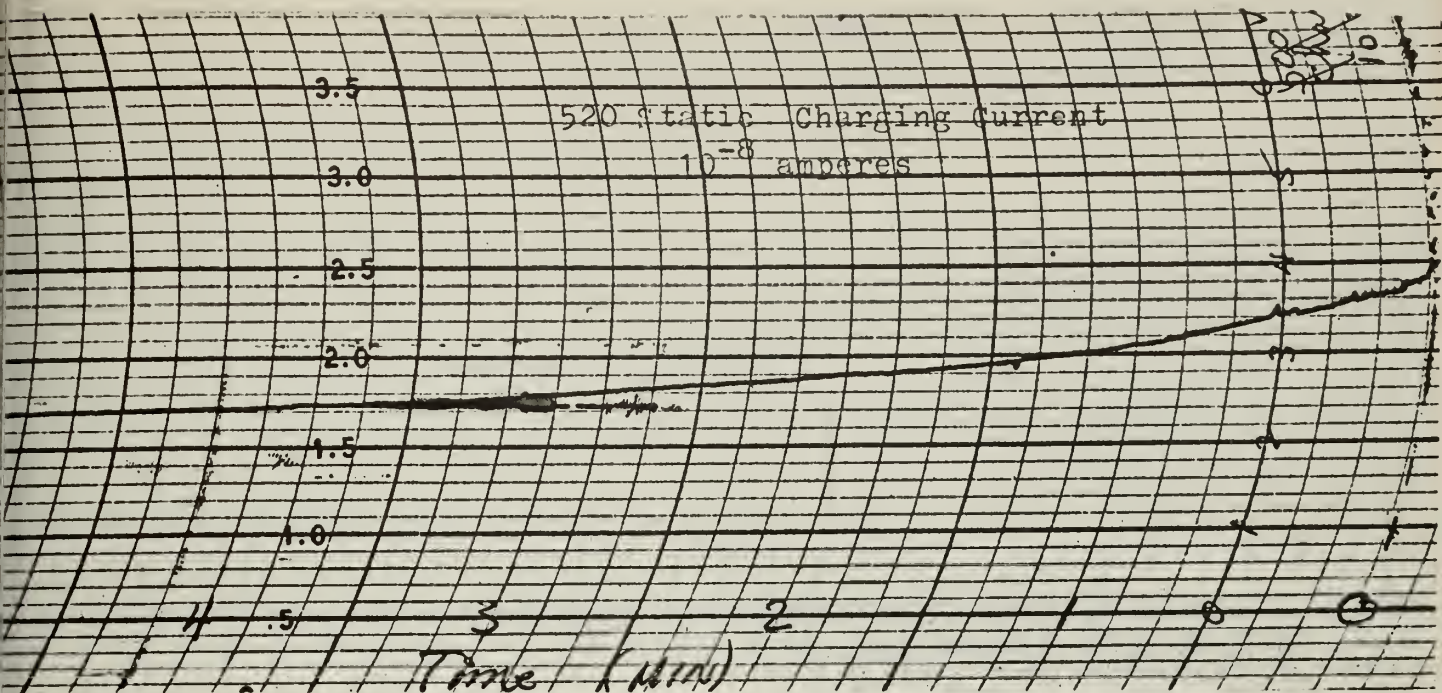 3.5
520 Static Charging Current
10⁻⁸ amperes
3.0
2.5
2.0
1.5
1.0
.5
10
6
5
4
3
2
1
0
4 3 2 1 0
Time (MIN)